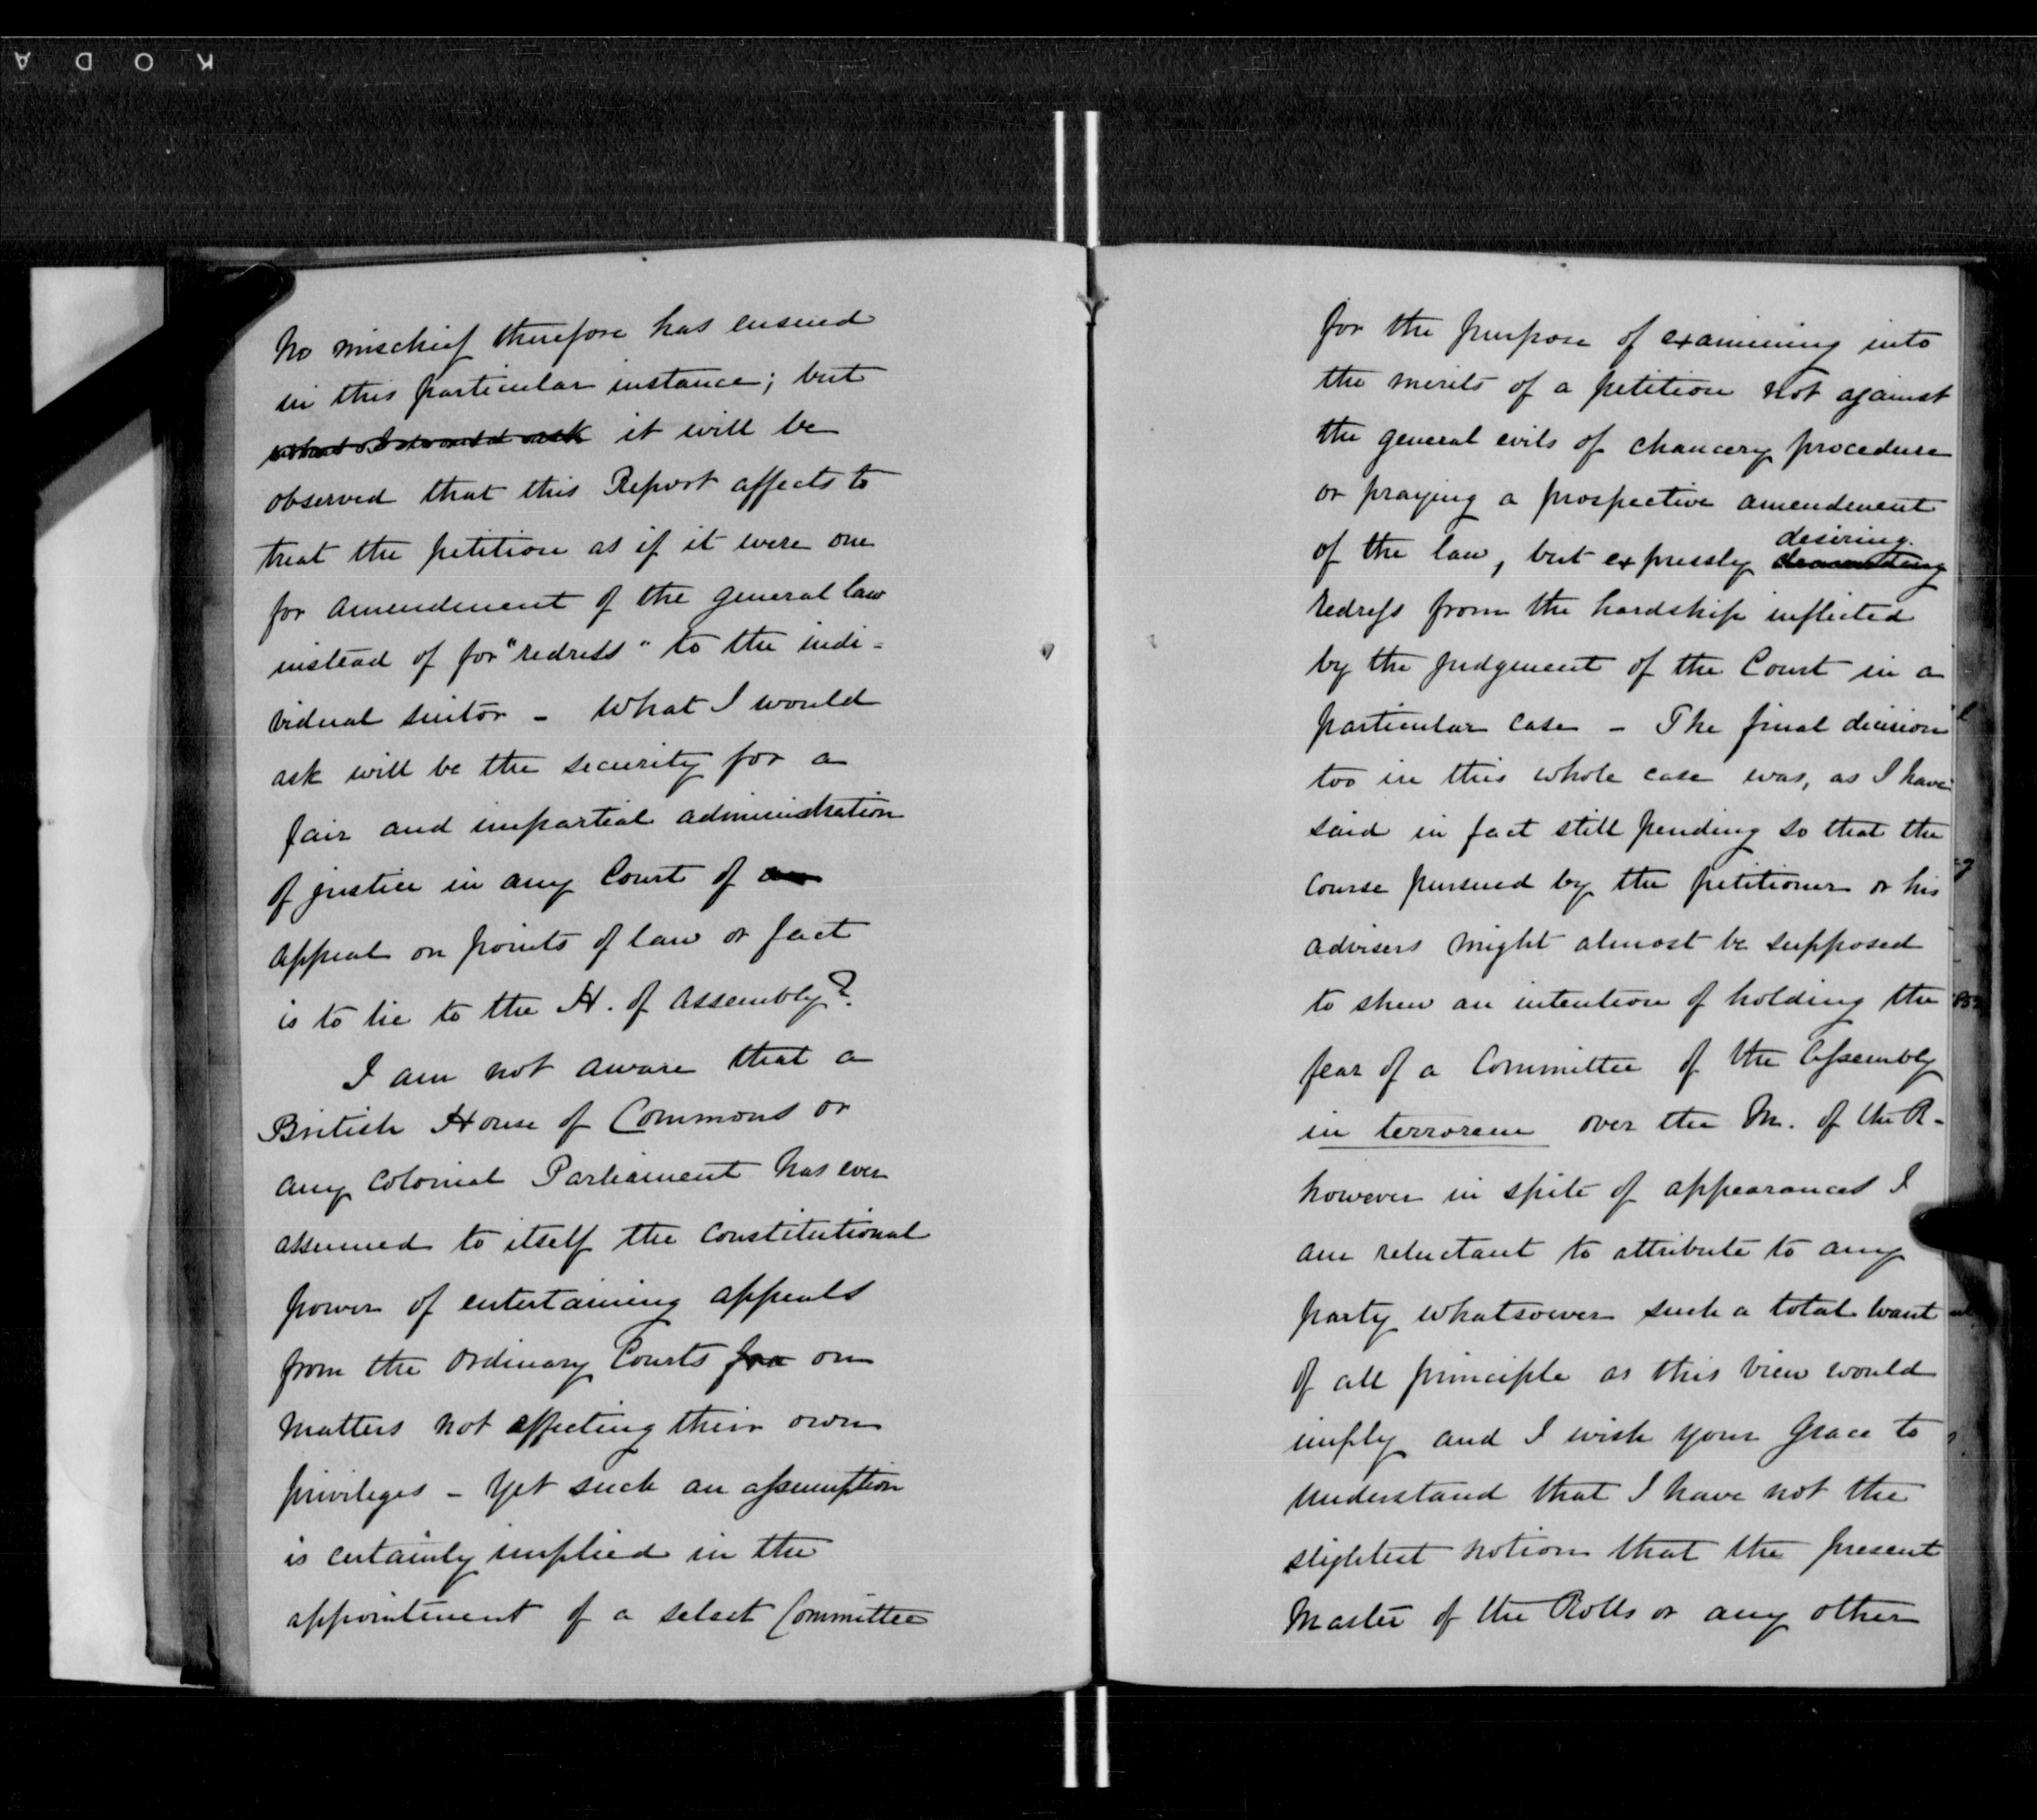 KODA
No mischief therefore has ensued
in this particular instance; but
what I would ask it will be
observed that this Report affects to
treat the petition as if it were one
for amendment of the general law
instead of for "redress" to the indi=
vidual suitor – What I would
ask will be the security for a
fair and impartial administration
of justice in any Court if an
appeal on points of law or fact
is to lie to the H. of Assembly?
I am not aware that a
British House of Commons or
any Colonial Parliament has ever
assumed to itself the constitutional
power of entertaining appeals
from the ordinary Courts on
matters not affecting their own
privileges – Yet such an assumption
is certainly implied in the
appointment of a select Committee
for the purpose of examining into
the merits of a petition not against
the general evils of chancery procedure
or praying a prospective amendment
of the law, but expressly desiring
redress from the hardship inflicted
by the judgement of the Court in a
particular case – The final decision
too in this whole case was, as I have
said in fact still pending so that the
course pursued by the petitioner or his
advisers might almost be supposed
to shew an intention of holding the
fear of a Committee of the Assembly
in terrorem over the M. of the R.
however in spite of appearances I
am reluctant to attribute to any
party whatsoever such a total want
of all principle as this view would
imply and I wish your Grace to
understand that I have not the
slightest notion that the present
Master of the Rolls or any other